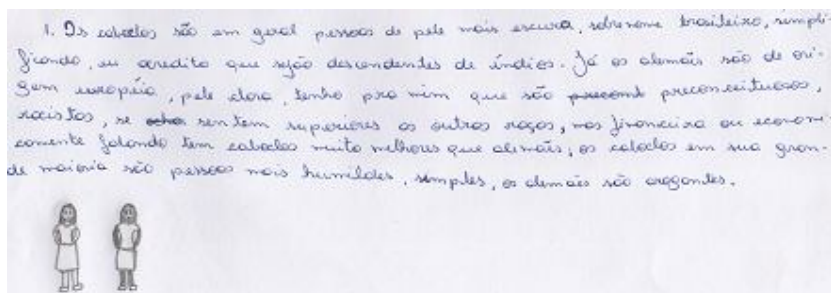 1. Os caboclos são em geral pessoas de pele mais escura, sobrenome brasileiro, simpli-
ficando, eu acredito que sejão descendentes de índios. Já os alemãis são de ori-
gem européia, pele clara, tenho pra mim que são preconceituosos,
racistas, se sentem superiores as outras raças, mas financeira ou economi
camente falando tem caboclos muito melhores que alemãis, os caboclos em sua gran-
de maioria são pessoas mais humildes, simples, os alemãis são arogantes.